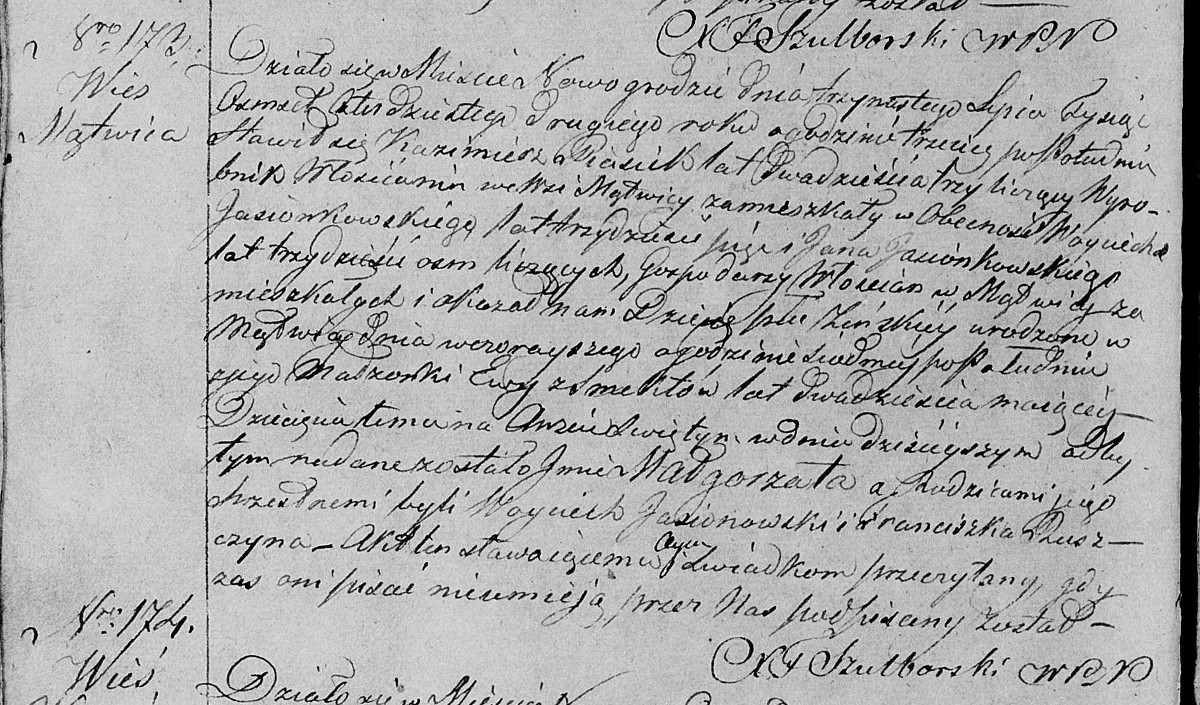 został
X F Szulborski WPN
Nro 173.
Wieś
Mątwica
Działo się w Mieście Nowogrodzie dnia trzynastego Lipca Tysiąc
Osmset Czterdziestego Drugiego roku o godzinie trzeciej po Południu
Stawił się Kazimierz Piasick lat Dwadzieścia trzy liczący Wyro-
bnik Włościanin we Wsi Mątwicy zamieszkały w Obecności Woyciecha
Jasionkowskiego lat trzydzieści pięć i Jana Jasionkowskiego
lat trzydzieści osm liczących, Gospodarzy Włościan w Mątwicy za
mieszkałych i okazał nam Dziecię płci Żeńskiéy urodzone w
Mątwicy dnia wczorayszego o godzinie siodmej po Południu
z jego Małżonki Ewy z lat Dwadzieścia maiącéy
Dziecięciu temu na Chrzcie Świętym w dniu dzisiéyszym odby
tym nadane zostało Jmie Małgorzata a Rodzicami jego
chrzestnemi byli Woyciech Jasionowski i Franciszka Rusz-
czyna – Akt ten stawaiącemu i Świadkom przeczytany, gdy
zas oni pisać nieumieją przez Nas podpisany został –
X F Szulborski WPN
Nro 174.
Wieś
Działo się w Mieście